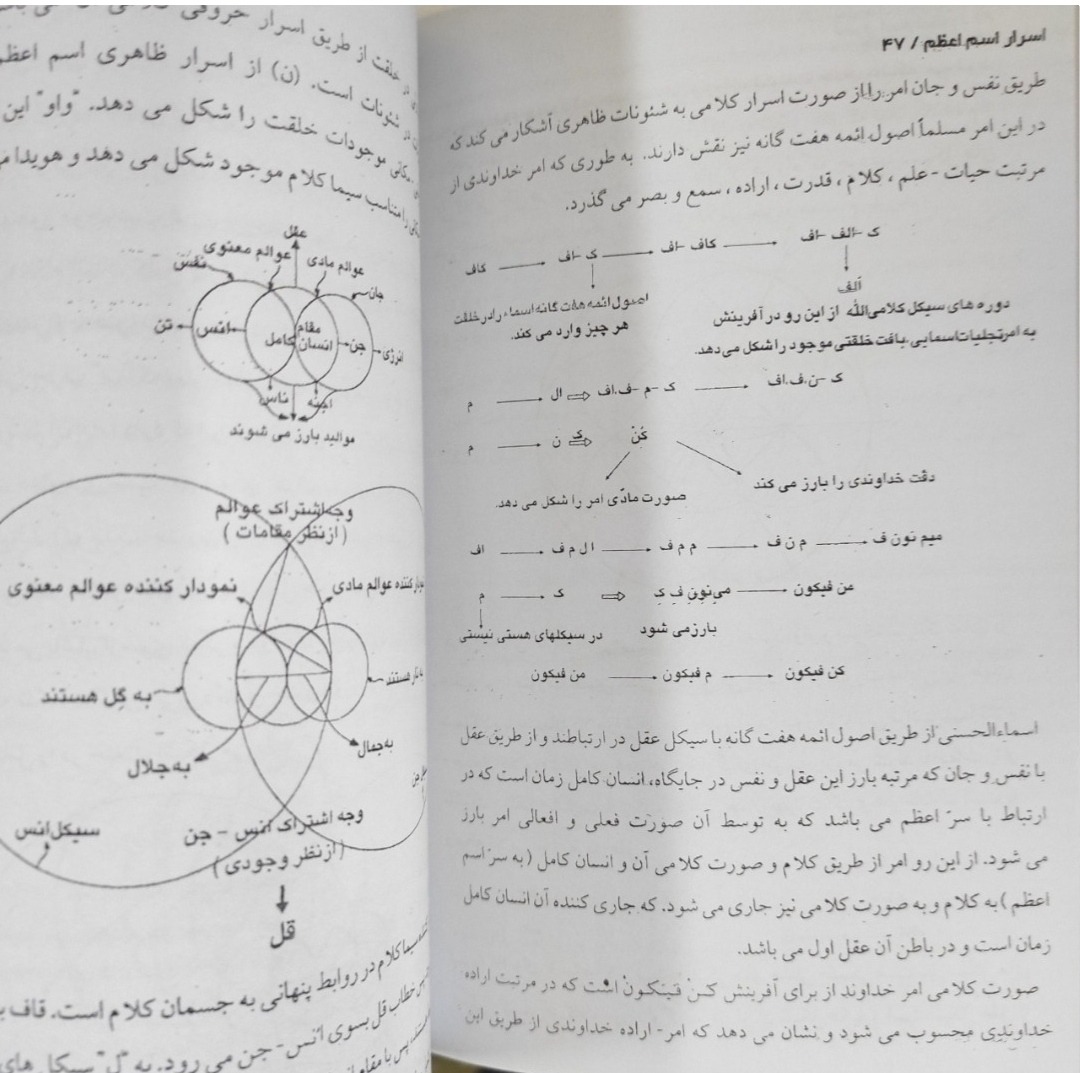 اسرار اسم اعظم / ۴۷
طریق نفس و جان امر را از صورت اسرار کلامی به شئونات ظاهری آشکار می کند که
در این امر مسلماً اصول ائمه هفت گانه نیز نقش دارند. به طوری که امر خداوندی از
مرتبت حیات - علم ، کلام ، قدرت ، اراده ، سمع و بصر می گذرد.
ک - الف - اف ← کاف - اف ← ک - اف ← کاف
الف
دوره های سیکل کلامی الله از این رو در آفرینش
به امر تجلیات اسمایی، بافت خلقتی موجود را شکل می دهد.
اصول ائمه هفت گانه اسماء را در خلقت
هر چیز وارد می کند.
ک - ن.ف.اف ← ک - م - ف.اف ⇒ ال ← م
کُنْ ک ⇒ ن ← م
دقت خداوندی را بارز می کند
صورت مادّی امر را شکل می دهد.
میم نون ف ← م ن ف ← م م ف ← ال م ف ← اف
من فیکون ← می نون ف ک ⇒ ک ← م
بارز می شود
در سیکلهای هستی نیستی
کن فیکون ← م فیکون ← من فیکون
اسماءالحسنی از طریق اصول ائمه هفت گانه با سیکل عقل در ارتباطند و از طریق عقل
با نفس و جان که مرتبه بارز این عقل و نفس در جایگاه، انسان کامل زمان است که در
ارتباط با سرّ اعظم می باشد که به توسط آن صورت فعلی و افعالی امر بارز
می شود. از این رو امر از طریق کلام و صورت کلامی آن و انسان کامل ( به سرّ اسم
اعظم ) به کلام و به صورت کلامی نیز جاری می شود. که جاری کننده آن انسان کامل
زمان است و در باطن آن عقل اول می باشد.
صورت کلامی امر خداوند از برای آفرینش کُنْ فَیَکُونْ است که در مرتبت اراده
خداوندی محسوب می شود و نشان می دهد که امر - اراده خداوندی از طریق این
خلقت از طریق اسرار حروفی
شئونات است. (ن) از اسرار ظاهری اسم اعظم
موجودات خلقت را شکل می دهد. "واو" این
را متناسب سیما کلام موجود شکل می دهد و هویدا
عقل
عوالم معنوی
عوالم مادی
نفس
جان
تن
انس
مقام
انسان
کامل
جن
انرژی
ناس
اجنه
موالید بارز می شوند
وجه اشتراک عوالم
( از نظر مقامات )
نمودار کننده عوالم معنوی
کننده عوالم مادی
به گِل هستند
هستند
به جلال
به جمال
سیکل انس
وجه اشتراک انس - جن
( از نظر وجودی )
قل
سیما کلام در روابط پنهانی به جسمان کلام است. قاف
خطاب قل بسوی انس - جن می رود. به "ل" سیکل های